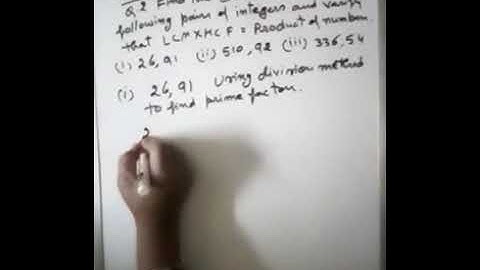 Q 2 Find the
following pairs of integers and verify
that LCM X HCF = Product of number.
(i) 26, 91 (ii) 510, 92 (iii) 336, 54
(i) 26, 91 Using division method
to find prime factors.
2